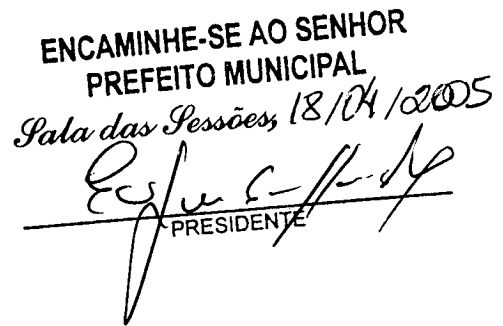 ENCAMINHE-SE AO SENHOR
PREFEITO MUNICIPAL
Sala das Sessões, 18/04/2005
PRESIDENTE